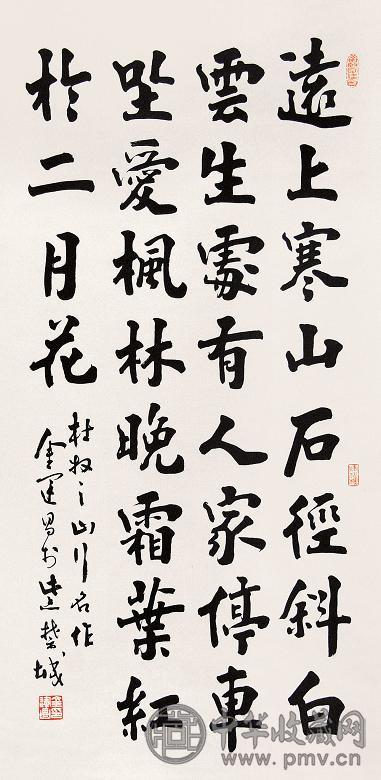 遠上寒山石徑斜白
雲生處有人家停車
坐愛楓林晚霜葉紅
於二月花
杜牧之山行名作
金運昌
中华收藏网
www.pmv.cn